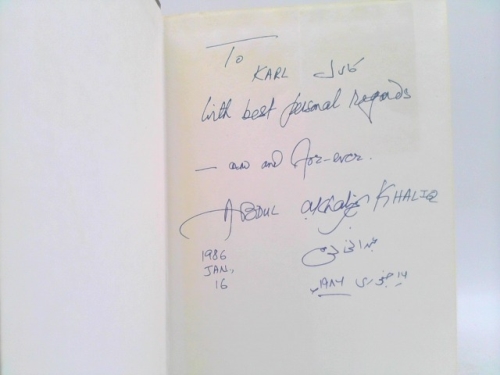 To
KARL کارل
With best personal regards
— now and for-ever.
ABDUL KHALIQ
عبدالخالق
1986
JAN,
16
۱۶ جنوری ۱۹۸۶